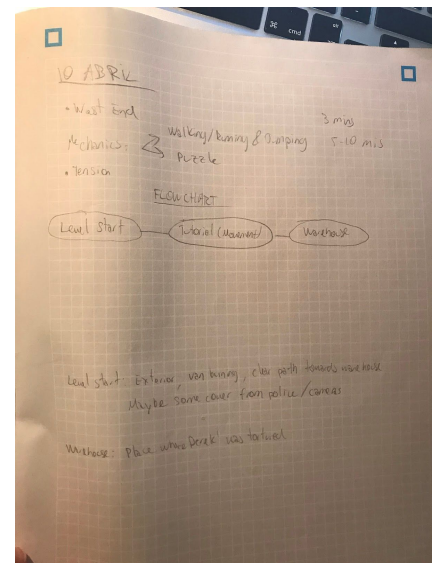 10 ABRIL
• West End
3 mins
Mechanics: Walking/Running & Jumping 5-10 mis
Puzzle
• Tension
FLOWCHART
Level start
Tutorial (Movement)
Warehouse
Level start: Exterior, van burning, clear path towards warehouse
Maybe some cover from police/cameras
Warehouse: Place where Derek was tortured
⌘ cmd